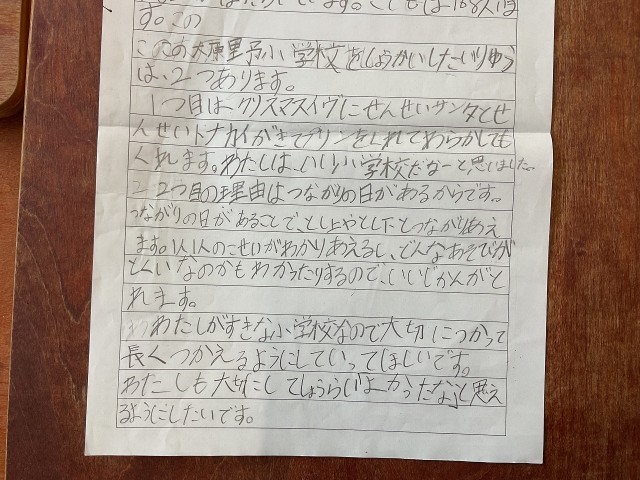 います。こどもは168人います。この
この大原里予小学校をしょうかいしたいりゆう
は、2つあります。
1つ目は、クリスマスイヴにせんせいサンタとせ
んせいトナカイがきてプリンをくれてわらかしても
くれます。わたしは、いいい学校だなーと思いました。
2つ目の理由はつながりの日があるからです。
つながりの日があることで、とし上やとし下とつながりあえ
ます。1人1人のこせいがわかりあえるし、どんなあそびが
とくいなのかもわかったりするので、いいじかんがと
れます。
わたしがすきな小学校なので大切につかって
長くつかえるようにしていってほしいです。
わたしも大切にしてしょうらい「よかったな」と思え
るようにしたいです。